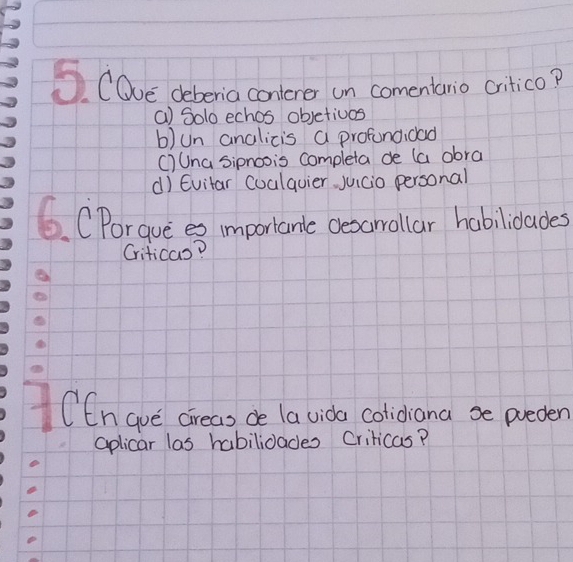 5. ¿Qué deberia contener un comentario critico?
a) Solo echos objetivos
b) Un analicis a profundidad
c) Una sipnosis completa de la obra
d) Evitar cualquier juicio personal
6. ¿Por qué es importante desarrollar habilidades
criticas?
7 ¿En qué áreas de la vida cotidiana se pueden
aplicar las habilidades criticas?